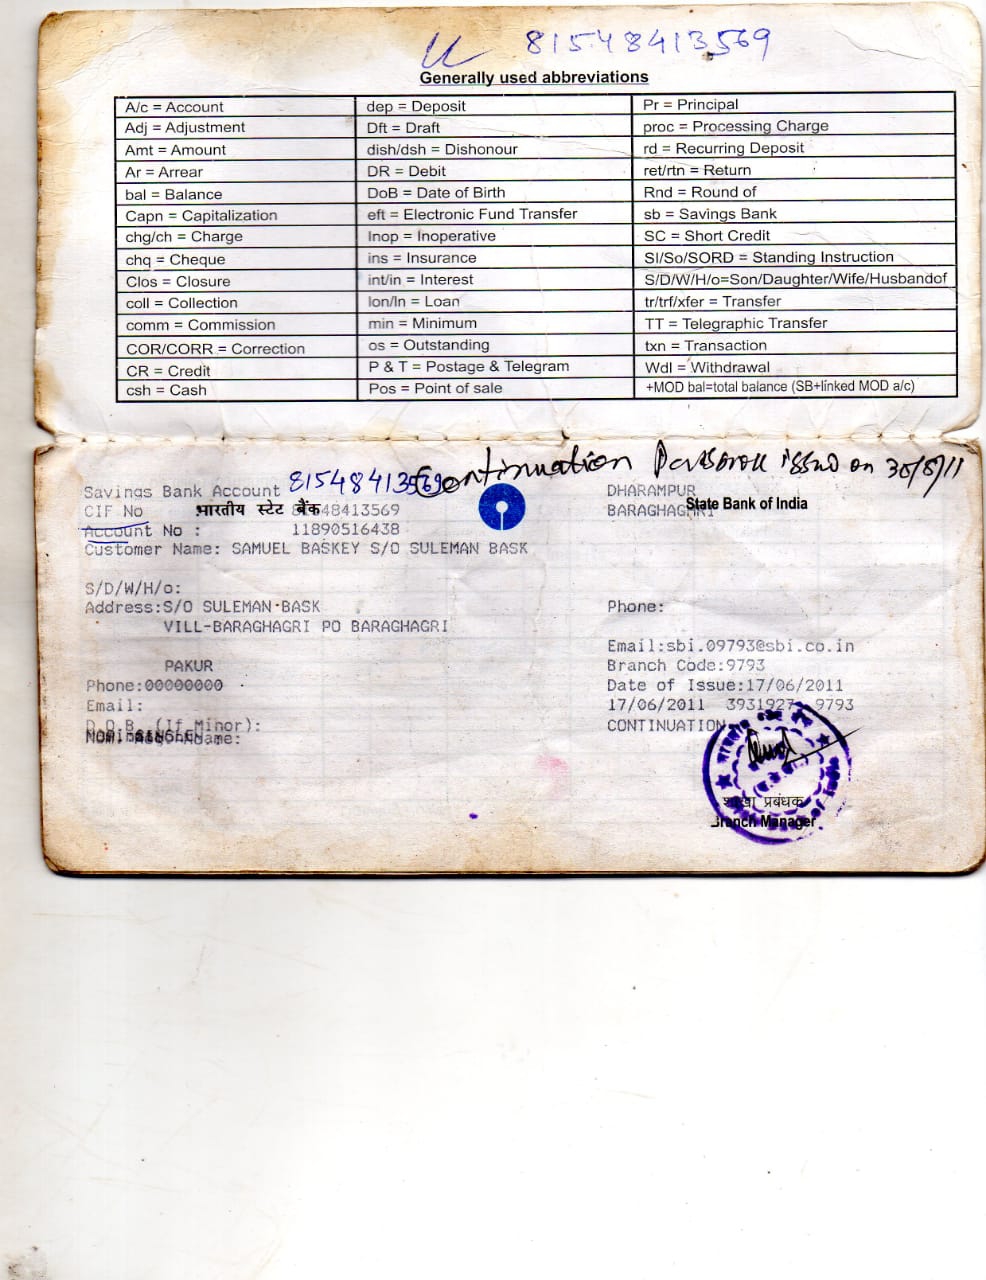 81548413569
Generally used abbreviations
A/c = Account
Adj = Adjustment
Amt = Amount
Ar = Arrear
bal = Balance
Capn = Capitalization
chg/ch = Charge
chq = Cheque
Clos = Closure
coll = Collection
comm = Commission
COR/CORR = Correction
CR = Credit
csh = Cash
dep = Deposit
Dft = Draft
dish/dsh = Dishonour
DR = Debit
DoB = Date of Birth
eft = Electronic Fund Transfer
Inop = Inoperative
ins = Insurance
int/in = Interest
lon/ln = Loan
min = Minimum
os = Outstanding
P & T = Postage & Telegram
Pos = Point of sale
Pr = Principal
proc = Processing Charge
rd = Recurring Deposit
ret/rtn = Return
Rnd = Round of
sb = Savings Bank
SC = Short Credit
SI/So/SORD = Standing Instruction
S/D/W/H/o=Son/Daughter/Wife/Husbandof
tr/trf/xfer = Transfer
TT = Telegraphic Transfer
txn = Transaction
Wdl = Withdrawal
+MOD bal=total balance (SB+linked MOD a/c)
Continuation issued on 30/8/11
Savings Bank Account 81548413569
CIF No भारतीय स्टेट बैंक 48413569
Account No : 11890516438
Customer Name: SAMUEL BASKEY S/O SULEMAN BASK
S/D/W/H/o:
Address:S/O SULEMAN BASK
VILL-BARAGHAGRI PO BARAGHAGRI
PAKUR
Phone:00000000
Email:
D.O.B. (If Minor):
DHARAMPUR
BARAGHAGRI State Bank of India
Phone:
Email:sbi.09793@sbi.co.in
Branch Code:9793
Date of Issue:17/06/2011
17/06/2011 3931927 9793
CONTINUATION
शाखा प्रबंधक
Branch Manager